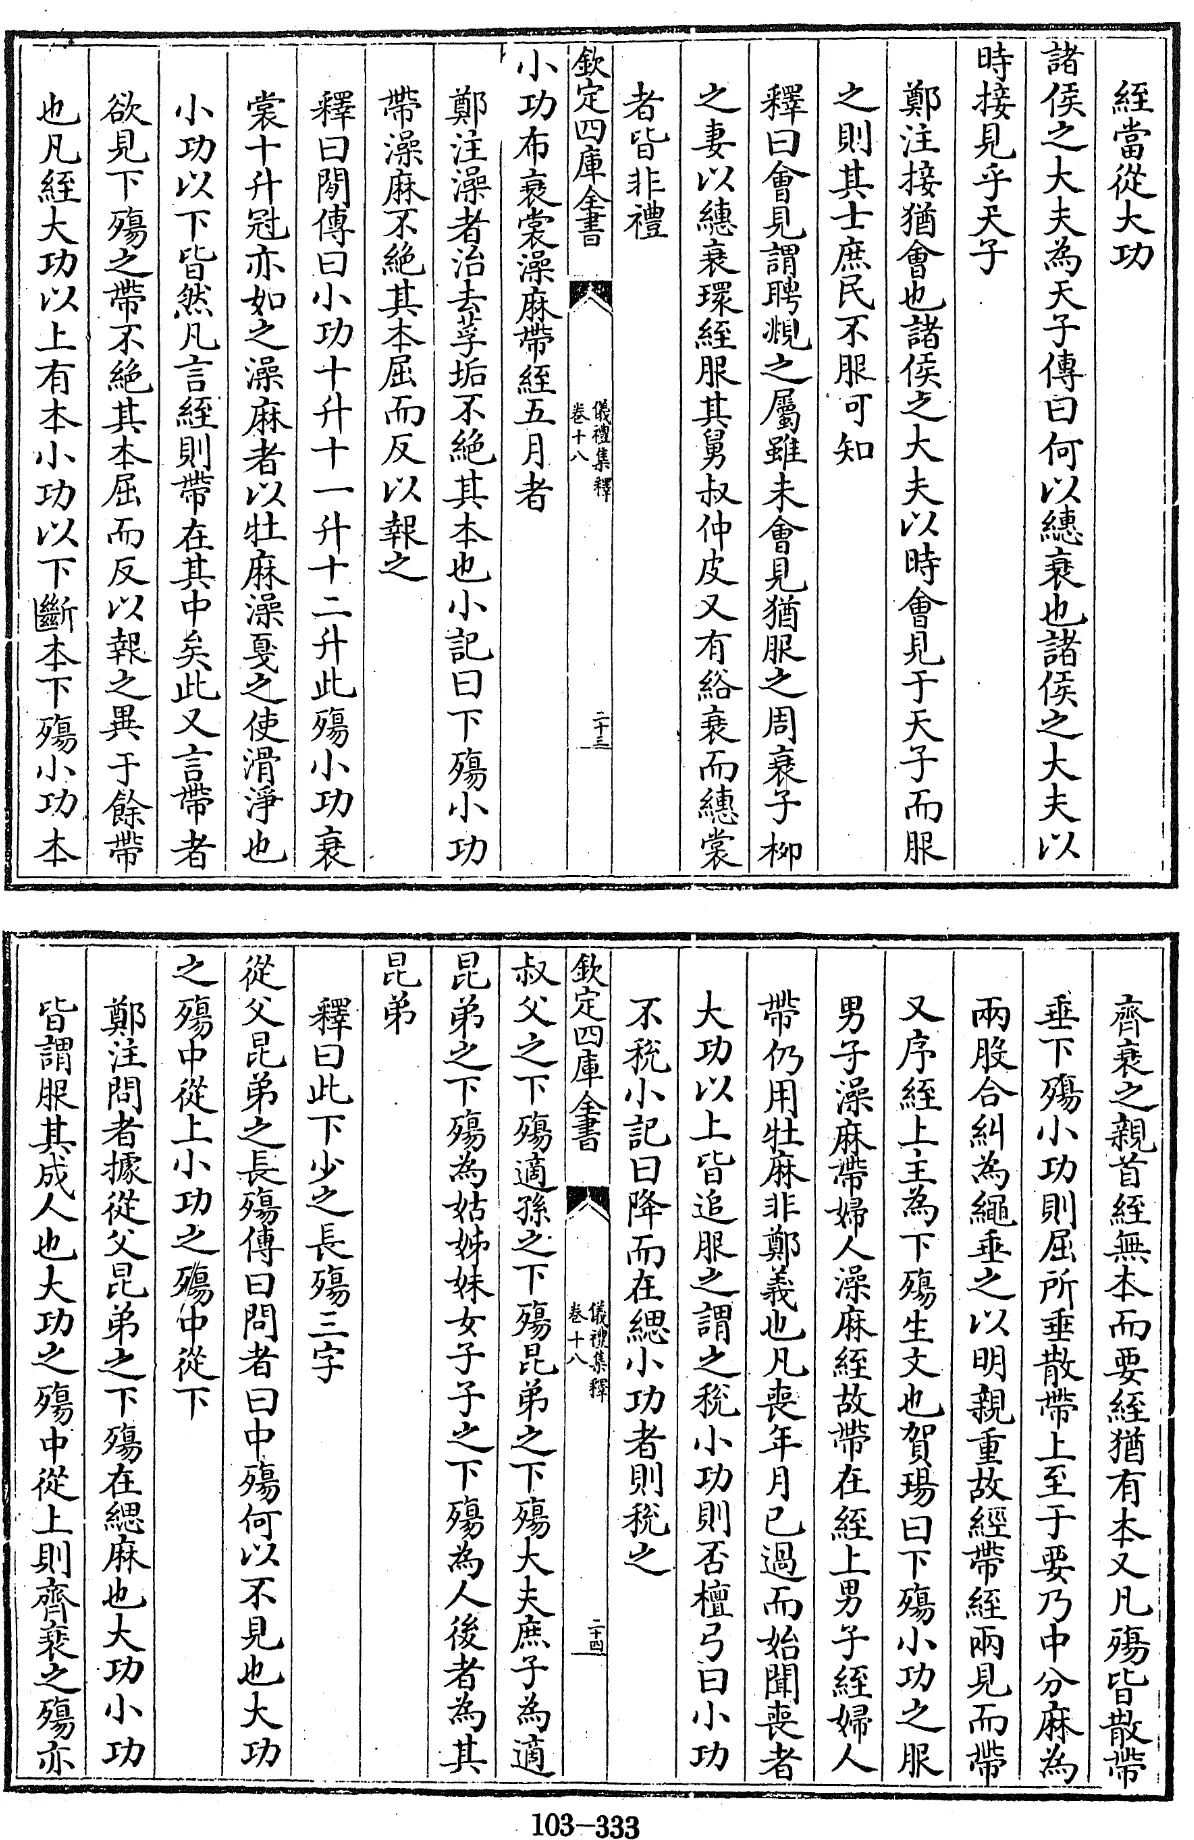 絰當從大功
諸侯之大夫為天子傳曰何以繐衰也諸侯之大夫以
時接見乎天子
鄭注接猶會也諸侯之大夫以時會見于天子而服
之則其士庶民不服可知
釋曰會見謂聘覜之屬雖未會見猶服之周衰子柳
之妻以繐衰環絰服其舅叔仲皮又有綌衰而繐裳
者皆非禮
欽定四庫全書
儀禮集釋
卷十八
二十三
小功布衰裳澡麻帶絰五月者
鄭注澡者治去莩垢不絶其本也小記曰下殤小功
帶澡麻不絶其本屈而反以報之
釋曰閒傳曰小功十升十一升十二升此殤小功衰
裳十升冠亦如之澡麻者以牡麻澡戞之使滑淨也
小功以下皆然凡言絰則帶在其中矣此又言帶者
欲見下殤之帶不絶其本屈而反以報之異于餘帶
也凡絰大功以上有本小功以下斷本下殤小功本
齊衰之親首絰無本而要絰猶有本又凡殤皆散帶
垂下殤小功則屈所垂散帶上至于要乃中分麻為
兩股合糾為繩垂之以明親重故經帶絰兩見而帶
又序絰上主為下殤生文也賀瑒曰下殤小功之服
男子澡麻帶婦人澡麻絰故帶在絰上男子絰婦人
帶仍用牡麻非鄭義也凡喪年月已過而始聞喪者
大功以上皆追服之謂之稅小功則否檀弓曰小功
不稅小記曰降而在緦小功者則稅之
欽定四庫全書
儀禮集釋
卷十八
二十四
叔父之下殤適孫之下殤昆弟之下殤大夫庶子為適
昆弟之下殤為姑姊妹女子子之下殤為人後者為其
昆弟
釋曰此下少之長殤三字
從父昆弟之長殤傳曰問者曰中殤何以不見也大功
之殤中從上小功之殤中從下
鄭注問者據從父昆弟之下殤在緦麻也大功小功
皆謂服其成人也大功之殤中從上則齊衰之殤亦
103-333